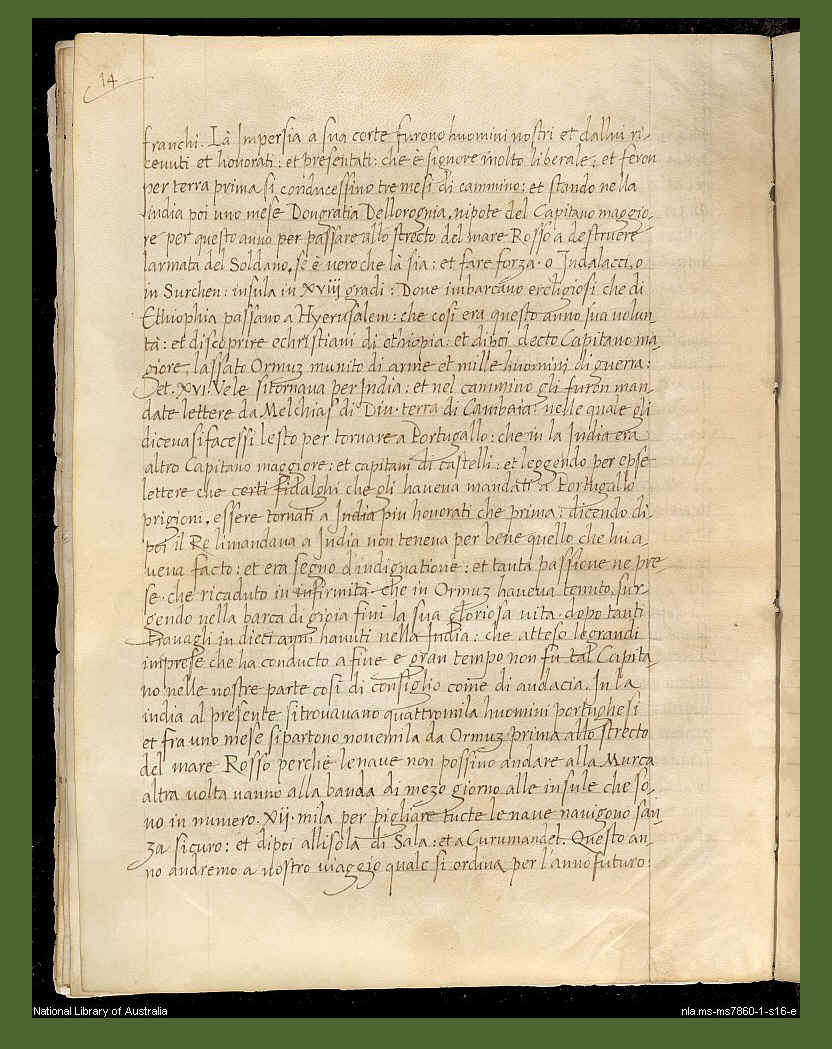 14
franchi. Là Impersia a sua corte furono huomini nostri et dallui ri-
cevuti et honorati: et presentati: che è signore molto liberale; et feron
per terra prima si conducessino tre mesi di cammino: et stando nella
india poi uno mese Dongratia Dellorognia, nipote del Capitano maggio-
re per questo anno per passare allo strecto del mare Rosso a destruere
larmata del Soldano, se è vero che là sia: et fare forza. o Indalacci, o
in Surchen: insula in XViij gradi: Dove imbarcano ereligiosi che di
Ethiophia passano a Hyerusalem: che così era questo anno sua volun
tà: et discoprire echristiani di ethiopia: et dipoi decto Capitano ma-
giore, lassato Ormuz munito di arme et mille huomini di guerra:
et. XVi. Vele sitornava per India: et nel cammino gli furon man-
date lettere da Melchias di Diu. terra di Cambaia: nelle quale gli
diceva si facessi lesto per tornare a Portugallo: che in la India era
altro Capitano maggiore: et capitani di castelli: et leggendo per epse
lettere che certi fidalghi che gli haveva mandati a Portugallo
prigioni, essere tornati a India piu honorati che prima: dicendo di
poi il Re limandava a India non teneva per bene quello che lui a-
veva facto: et era segno d'indignatione: et tanta passione ne pre-
se. che ricaduto in infirmità. che in Ormuz haveva tenuto, sur-
gendo nella barca di gioia finì la sua gloriosa vita. dopo tanti
travagli in dieci anni havuti nella India: che atteso legrandi
imprese che ha conducto a fine e gran tempo non fu tal Capita-
no nelle nostre parte così di consiglio come di audacia. In la
india al presente sitrovavano quattromila huomini portughesi
et fra uno mese sipartono novemila da Ormuz prima allo strecto
del mare Rosso perchè lenave non possino andare alla Murca
altra volta vanno alla banda di mezo giorno alle insule che so-
no in numero. Xij. mila per pigliare tucte le nave navigono san-
za sicuro: et dipoi allisola di Sala: et a Curumandel. Questo an-
no andremo a nostro viaggio quale si ordina per l'anno futuro:
National Library of Australia
nla.ms-ms7860-1-s16-e